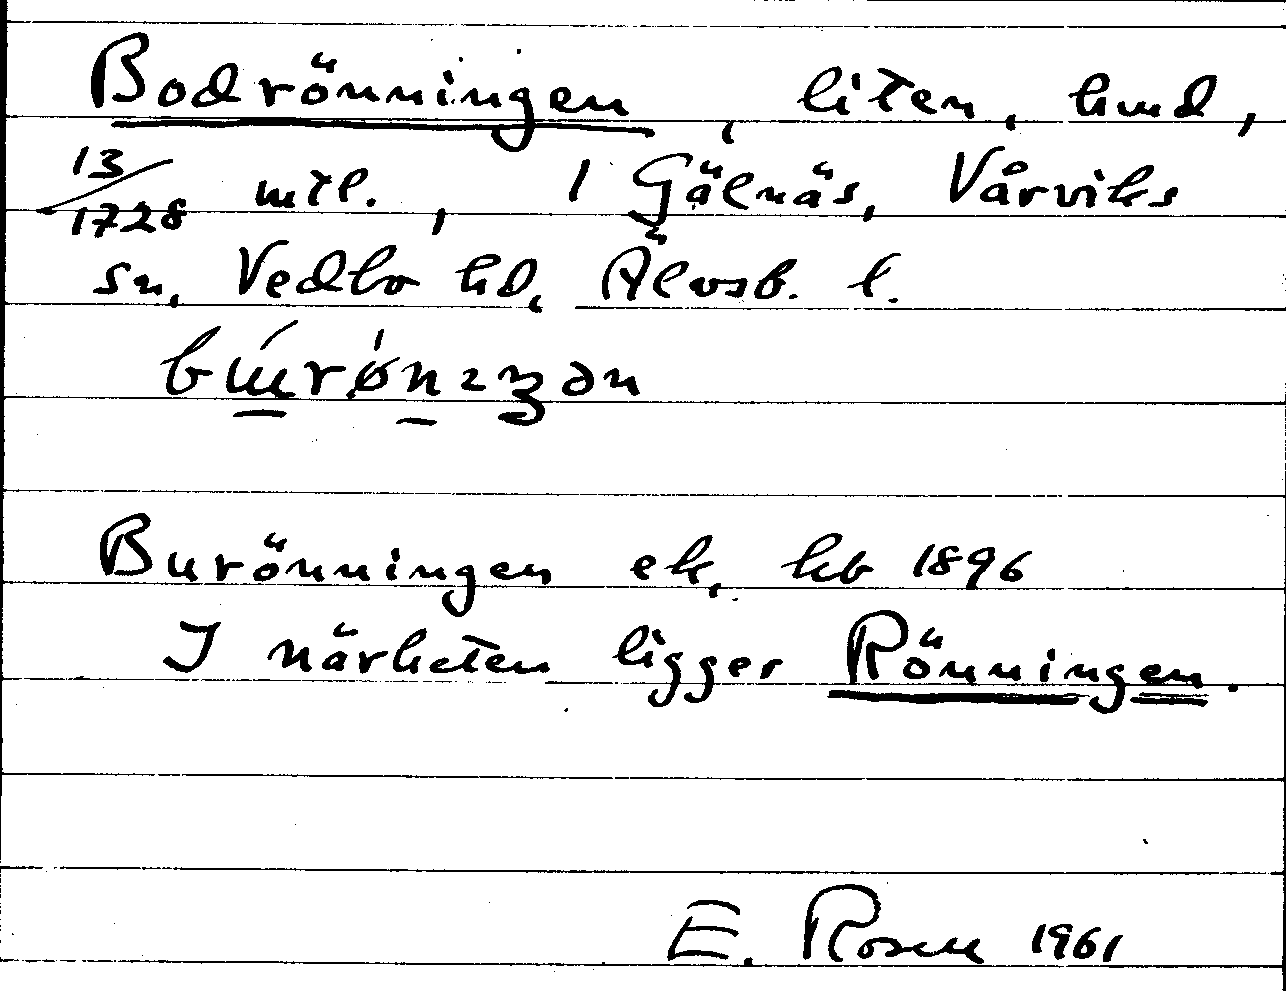 Bodrönningen, liten, hmd,
13/1728 mtl., 1 Gälnäs, Vårviks
sn, Vedbo hd, Älvsb. l.
Burönningen ek, kb 1896
I närheten ligger Rönningen.
E. Rosell 1961